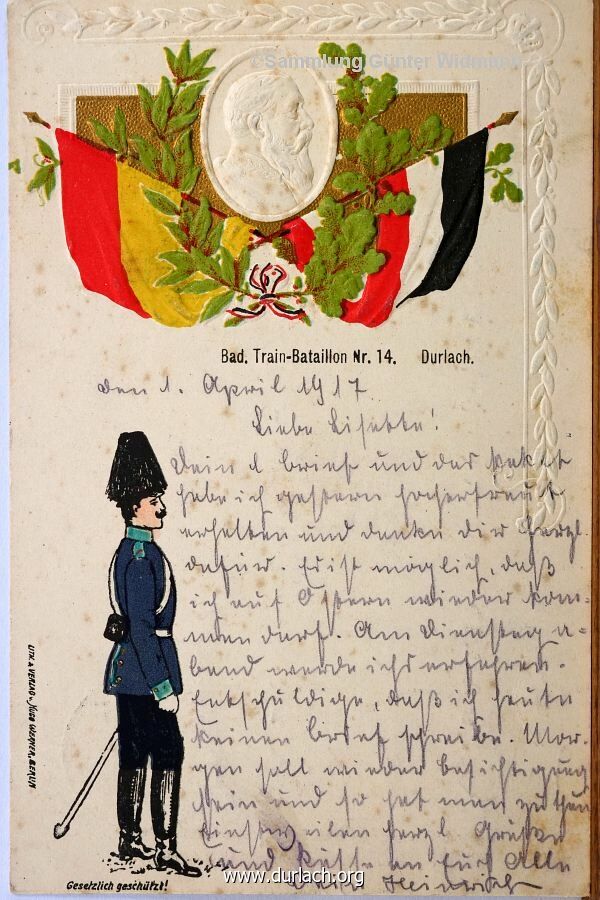 ©Sammlung Günter Widmann
Bad. Train-Bataillon Nr. 14. Durlach.
den 1. April 1917.
Liebe Lisette!
Dein l brief und das Paket
habe ich gestern hocherfreut
erhalten und danke dir herzl.
dafür. Es ist möglich, daß
ich auf Ostern wieder kom-
men darf. Am Dienstag a-
bend werde ichs erfahren.
Entschuldige, daß ich heute
keinen brief schreibe. Mor-
gen soll wieder besichtigung
sein und so hat man zu thun
Einstweilen herzl Grüße
und Küsse an Euch Alle
Heinrich
LITH. & VERLAG v. HUGO WAGNER, BERLIN
Gesetzlich geschützt!
www.durlach.org